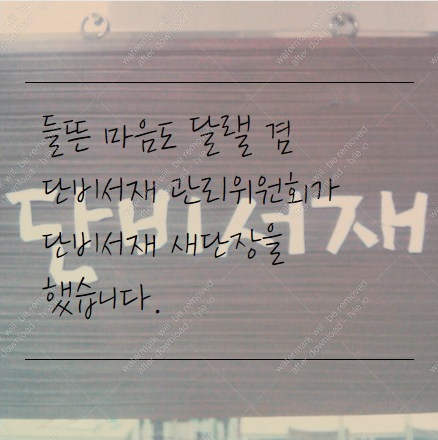 들뜬 마음도 달랠 겸
단비서재 관리위원회가
단비서재 새단장을
했습니다.
단비서재